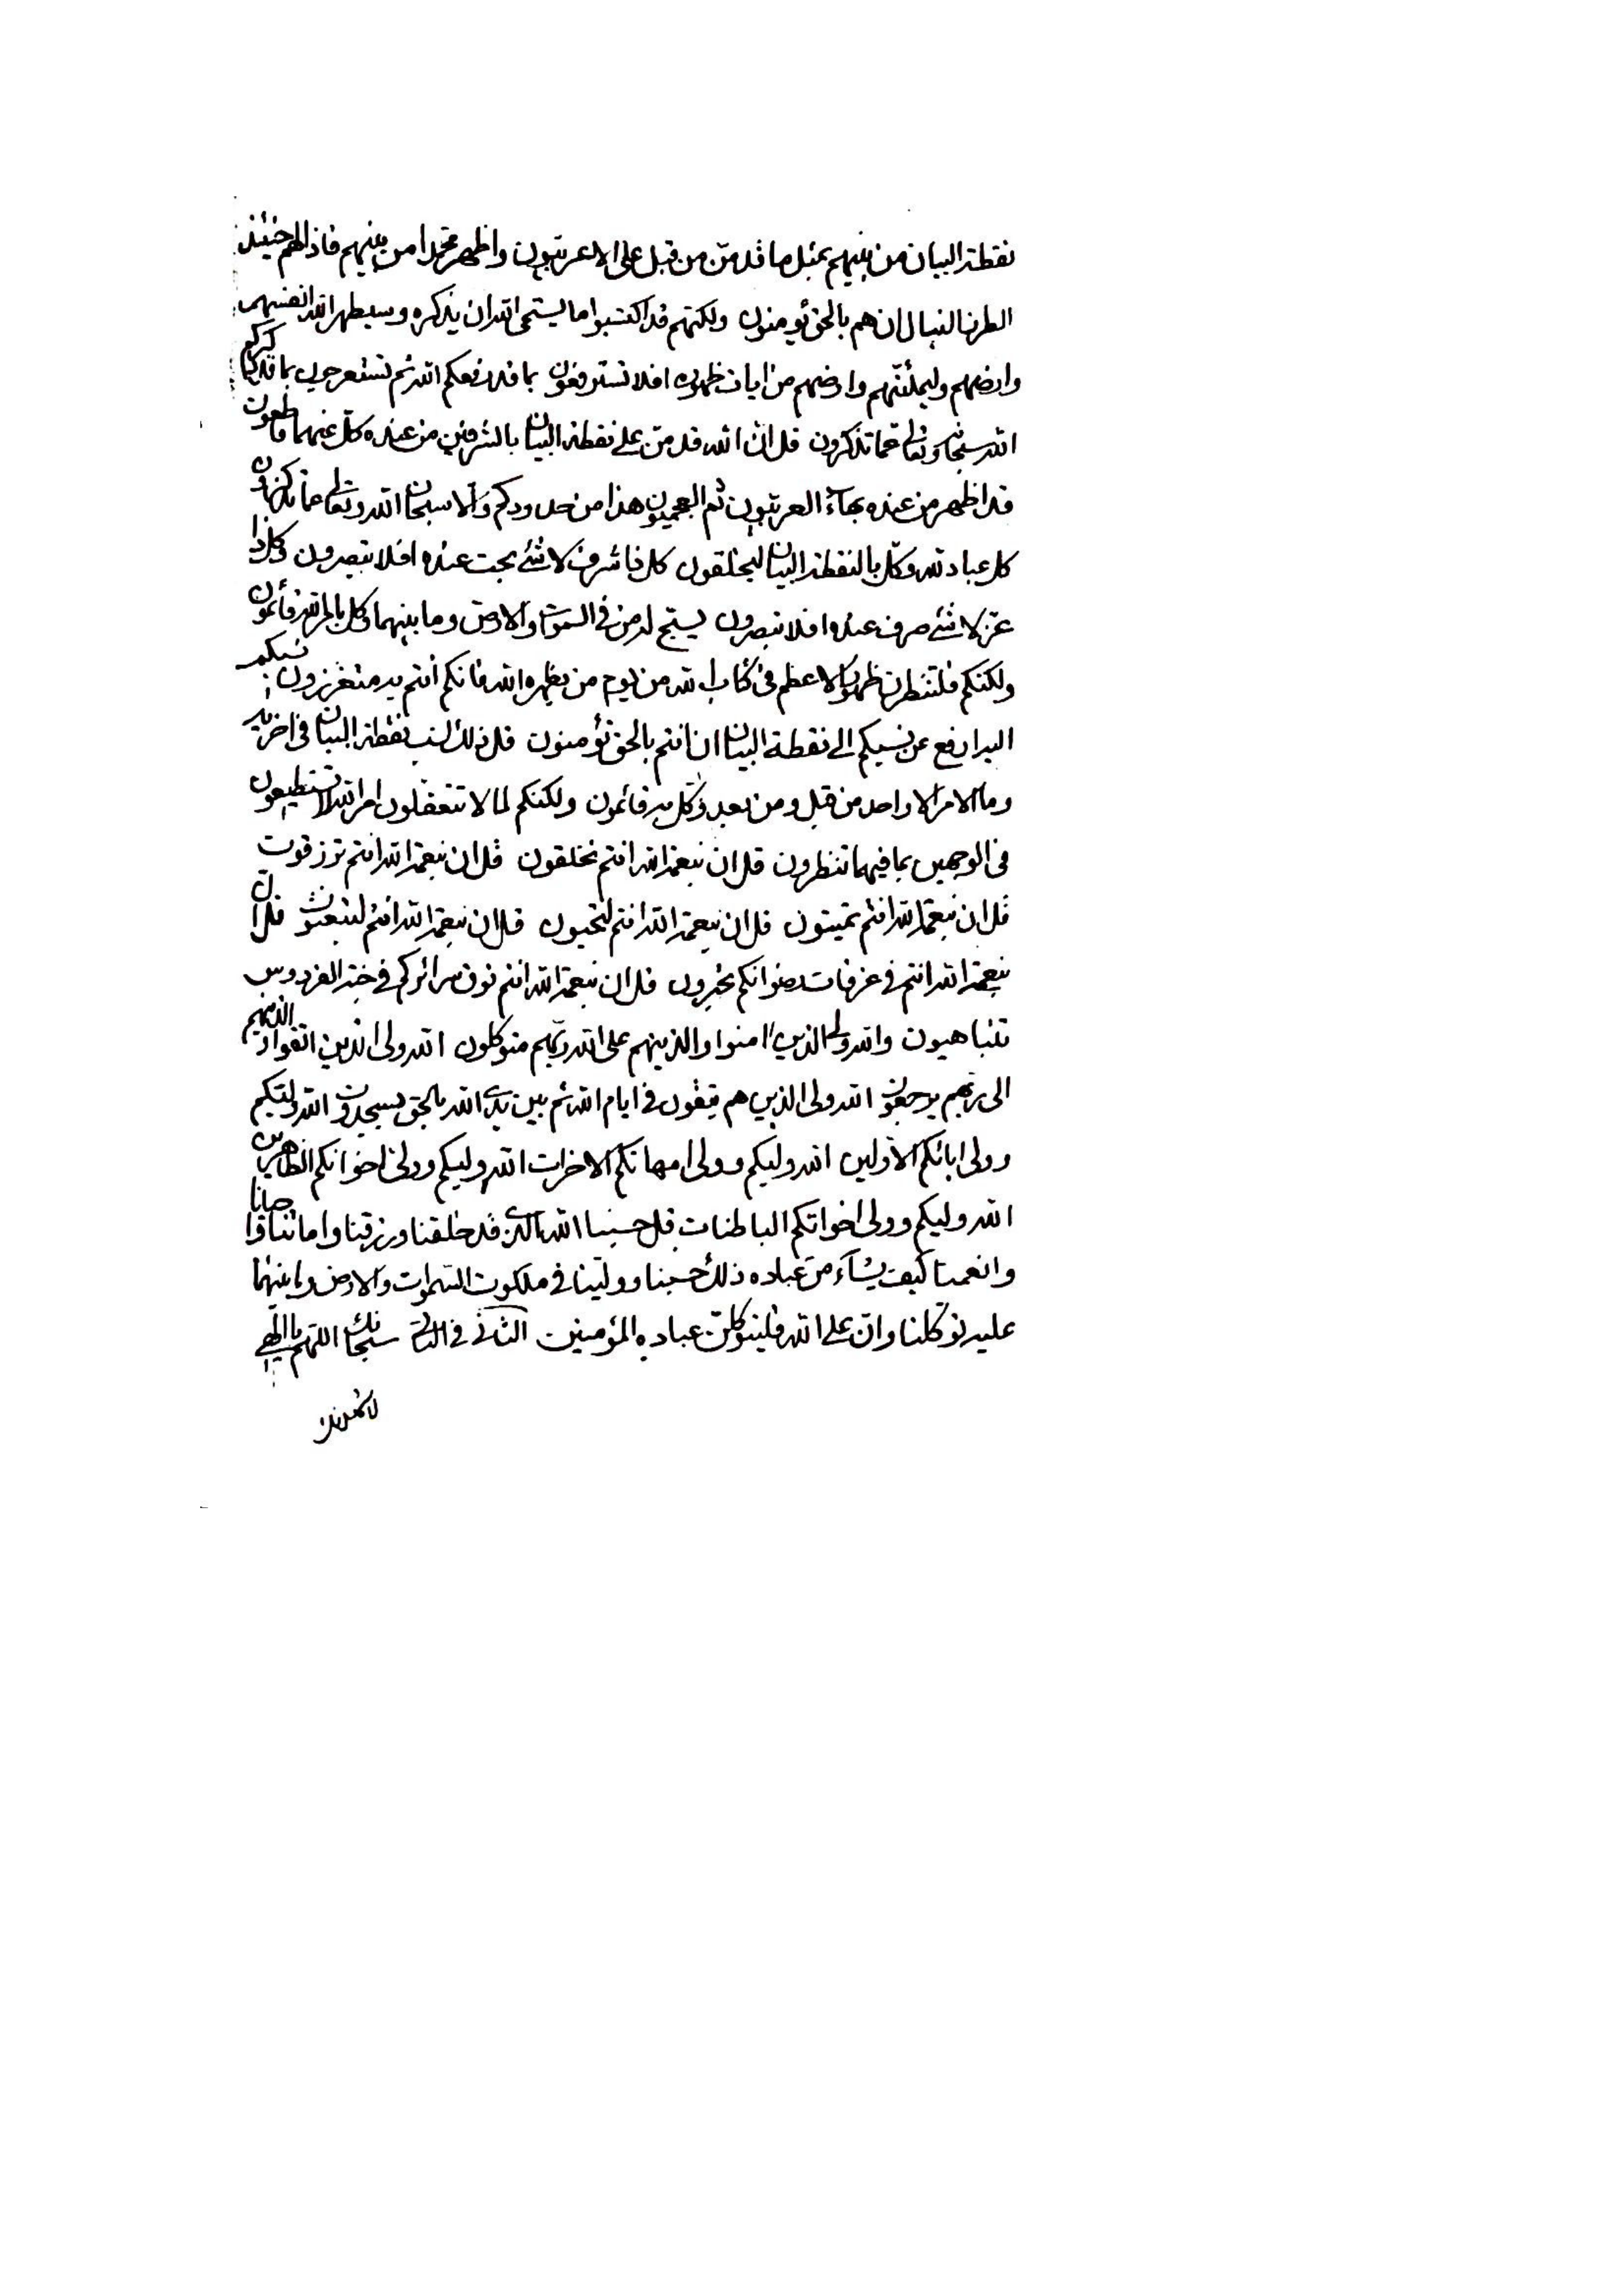 نقطة البيان من بينهم بمثل ما قد من من قبل على الاعربيون واظهر محمدا من بينهم فاذا لهم حينئذ
ان هم بالحق يؤمنون ولكنهم قد اكتسبوا ما يستحى الله ان يذكره وسيطهر الله انفسهم
وارضهم وليملئنهم وارضهم من ايات ظهوره افلا تسترفعون بما قد رفعكم الله ثم تستعرجون بما قد كرمكم
الله سبحانه وتعالى عما تذكرون قل ان الله قد من على نقطة البيان بالشرفين من عنده كل عنهما قاطعون
قد اظهر من عنده بهاء العربيون ثم العجميون هذا من حدودكم والا سبحان الله وتعالى عما تذكرون
كل عباد لله وكل بالنقطة البيان ليخلقون كل ذا شرف لا شئ بحت عنده افلا تبصرون وكل ذا
عز لا شئ صرف عنده افلا تبصرون يسبح له من فى السموات والارض وما بينهما وكل بامر الله قائمون
ولكنكم فلتنظرن ظهور الاعظم فى كتاب الله من يوم من يظهره الله فانكم انتم به متعززون نسبكم
اليه ارفع عن نسبكم الى نقطة البيان ان انتم بالحق تؤمنون قل ذلك نسب نقطة البيان فى اخريه
وما الامر الا واحد من قبل ومن بعد وكل به قائمون ولكنكم لما لا تتعقلون امر الله لا تستطيعون
فى الوجهين بما فيهما تنظرون قل ان بنعمة الله انتم تخلقون قل ان بنعمة الله انتم ترزقون
قل ان بنعمة الله انتم تميتون قل ان بنعمة الله انتم لتحيون قل ان بنعمة الله انتم لتبعثون قل ان
بنعمة الله انتم فى غرفات رضوانكم تحبرون قل ان بنعمة الله انتم فوق سرائركم فى جنة الفردوس
تتباهيون والله ولى الذين امنوا والذينهم على الله ربهم متوكلون الله ولى الذين اتقوا والذينهم
الى ربهم يرجعون الله ولى الذين هم يتقون فى ايام الله ثم بين يدى الله بالحق يسجدون الله وليكم
وولى ابائكم الاولين الله وليكم وولى امهاتكم الاخرات الله وليكم وولى اخوانكم الظاهرين
الله وليكم وولى اخواتكم الباطنات قل حسبنا الله الذى قد خلقنا ورزقنا واماتنا واحيانا
وانعمنا كيف يشآء من عباده ذلك حسبنا وولينا فى ملكوت السموات والارض وما بينهما
عليه توكلنا وان على الله فليتوكلن عباده المؤمنين الثانى فى الثانى سبحانك اللهم يا الهى
لاشهدنك